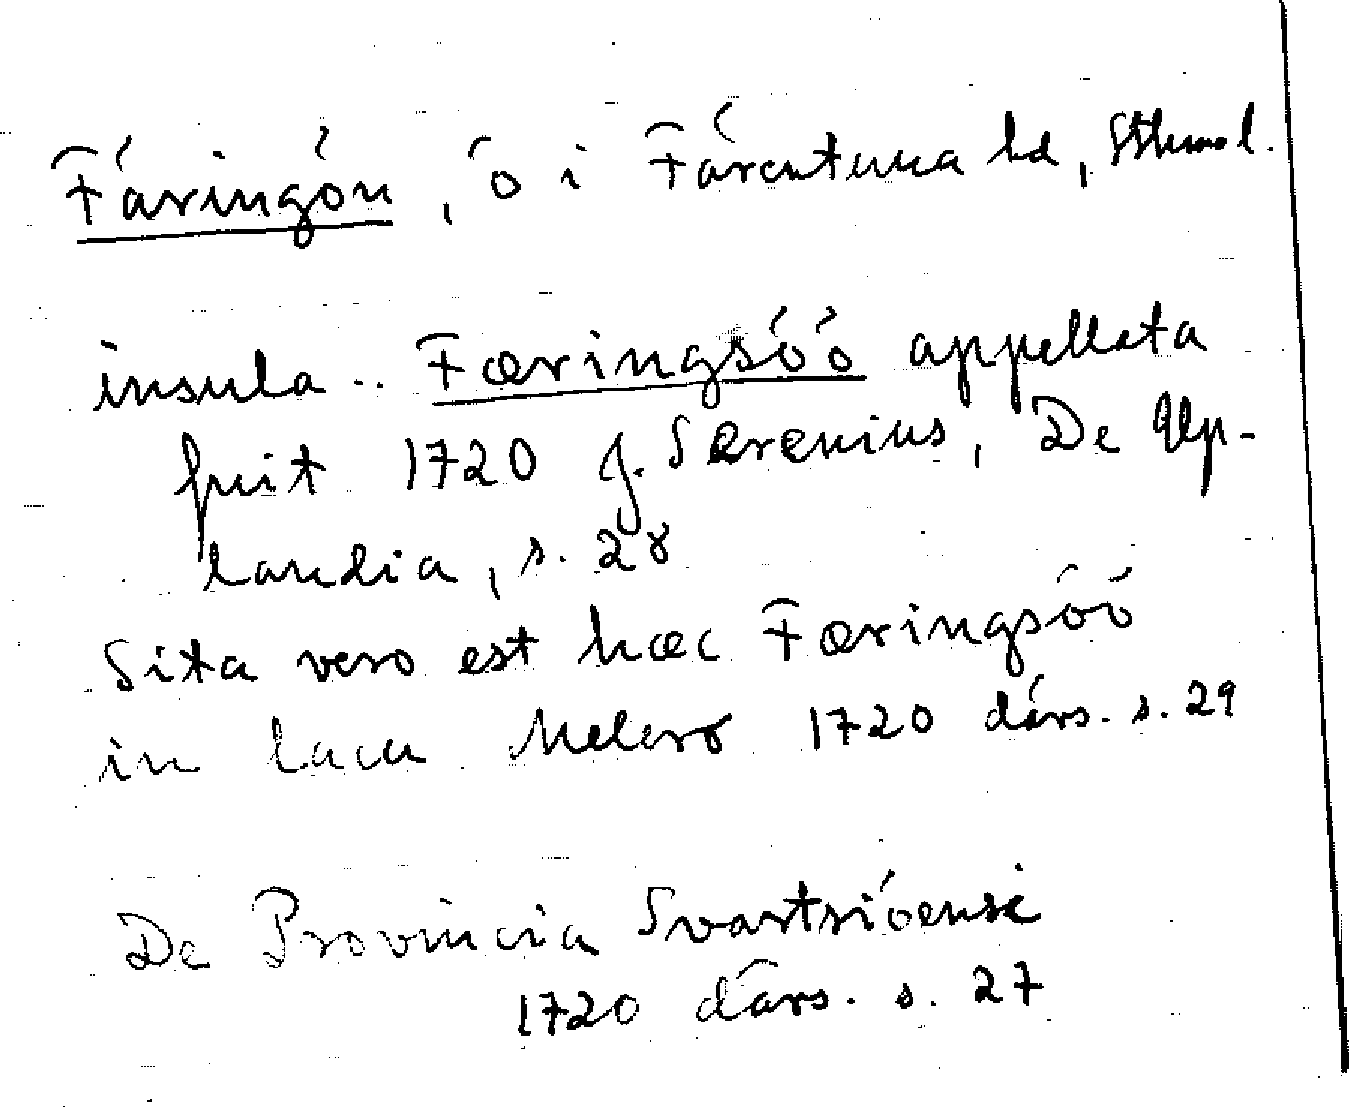 Färingön, ö i Färentuna hd, Sthmsl.
insula .. Færingsöö appellata
fuit 1720 J. Serenius, De Up-
landia, s. 28
Sita vero est hæc Færingsöö
in lacu Melero 1720 därs. s. 29
De Provincia Svartsiöensi
1720 därs. s. 27